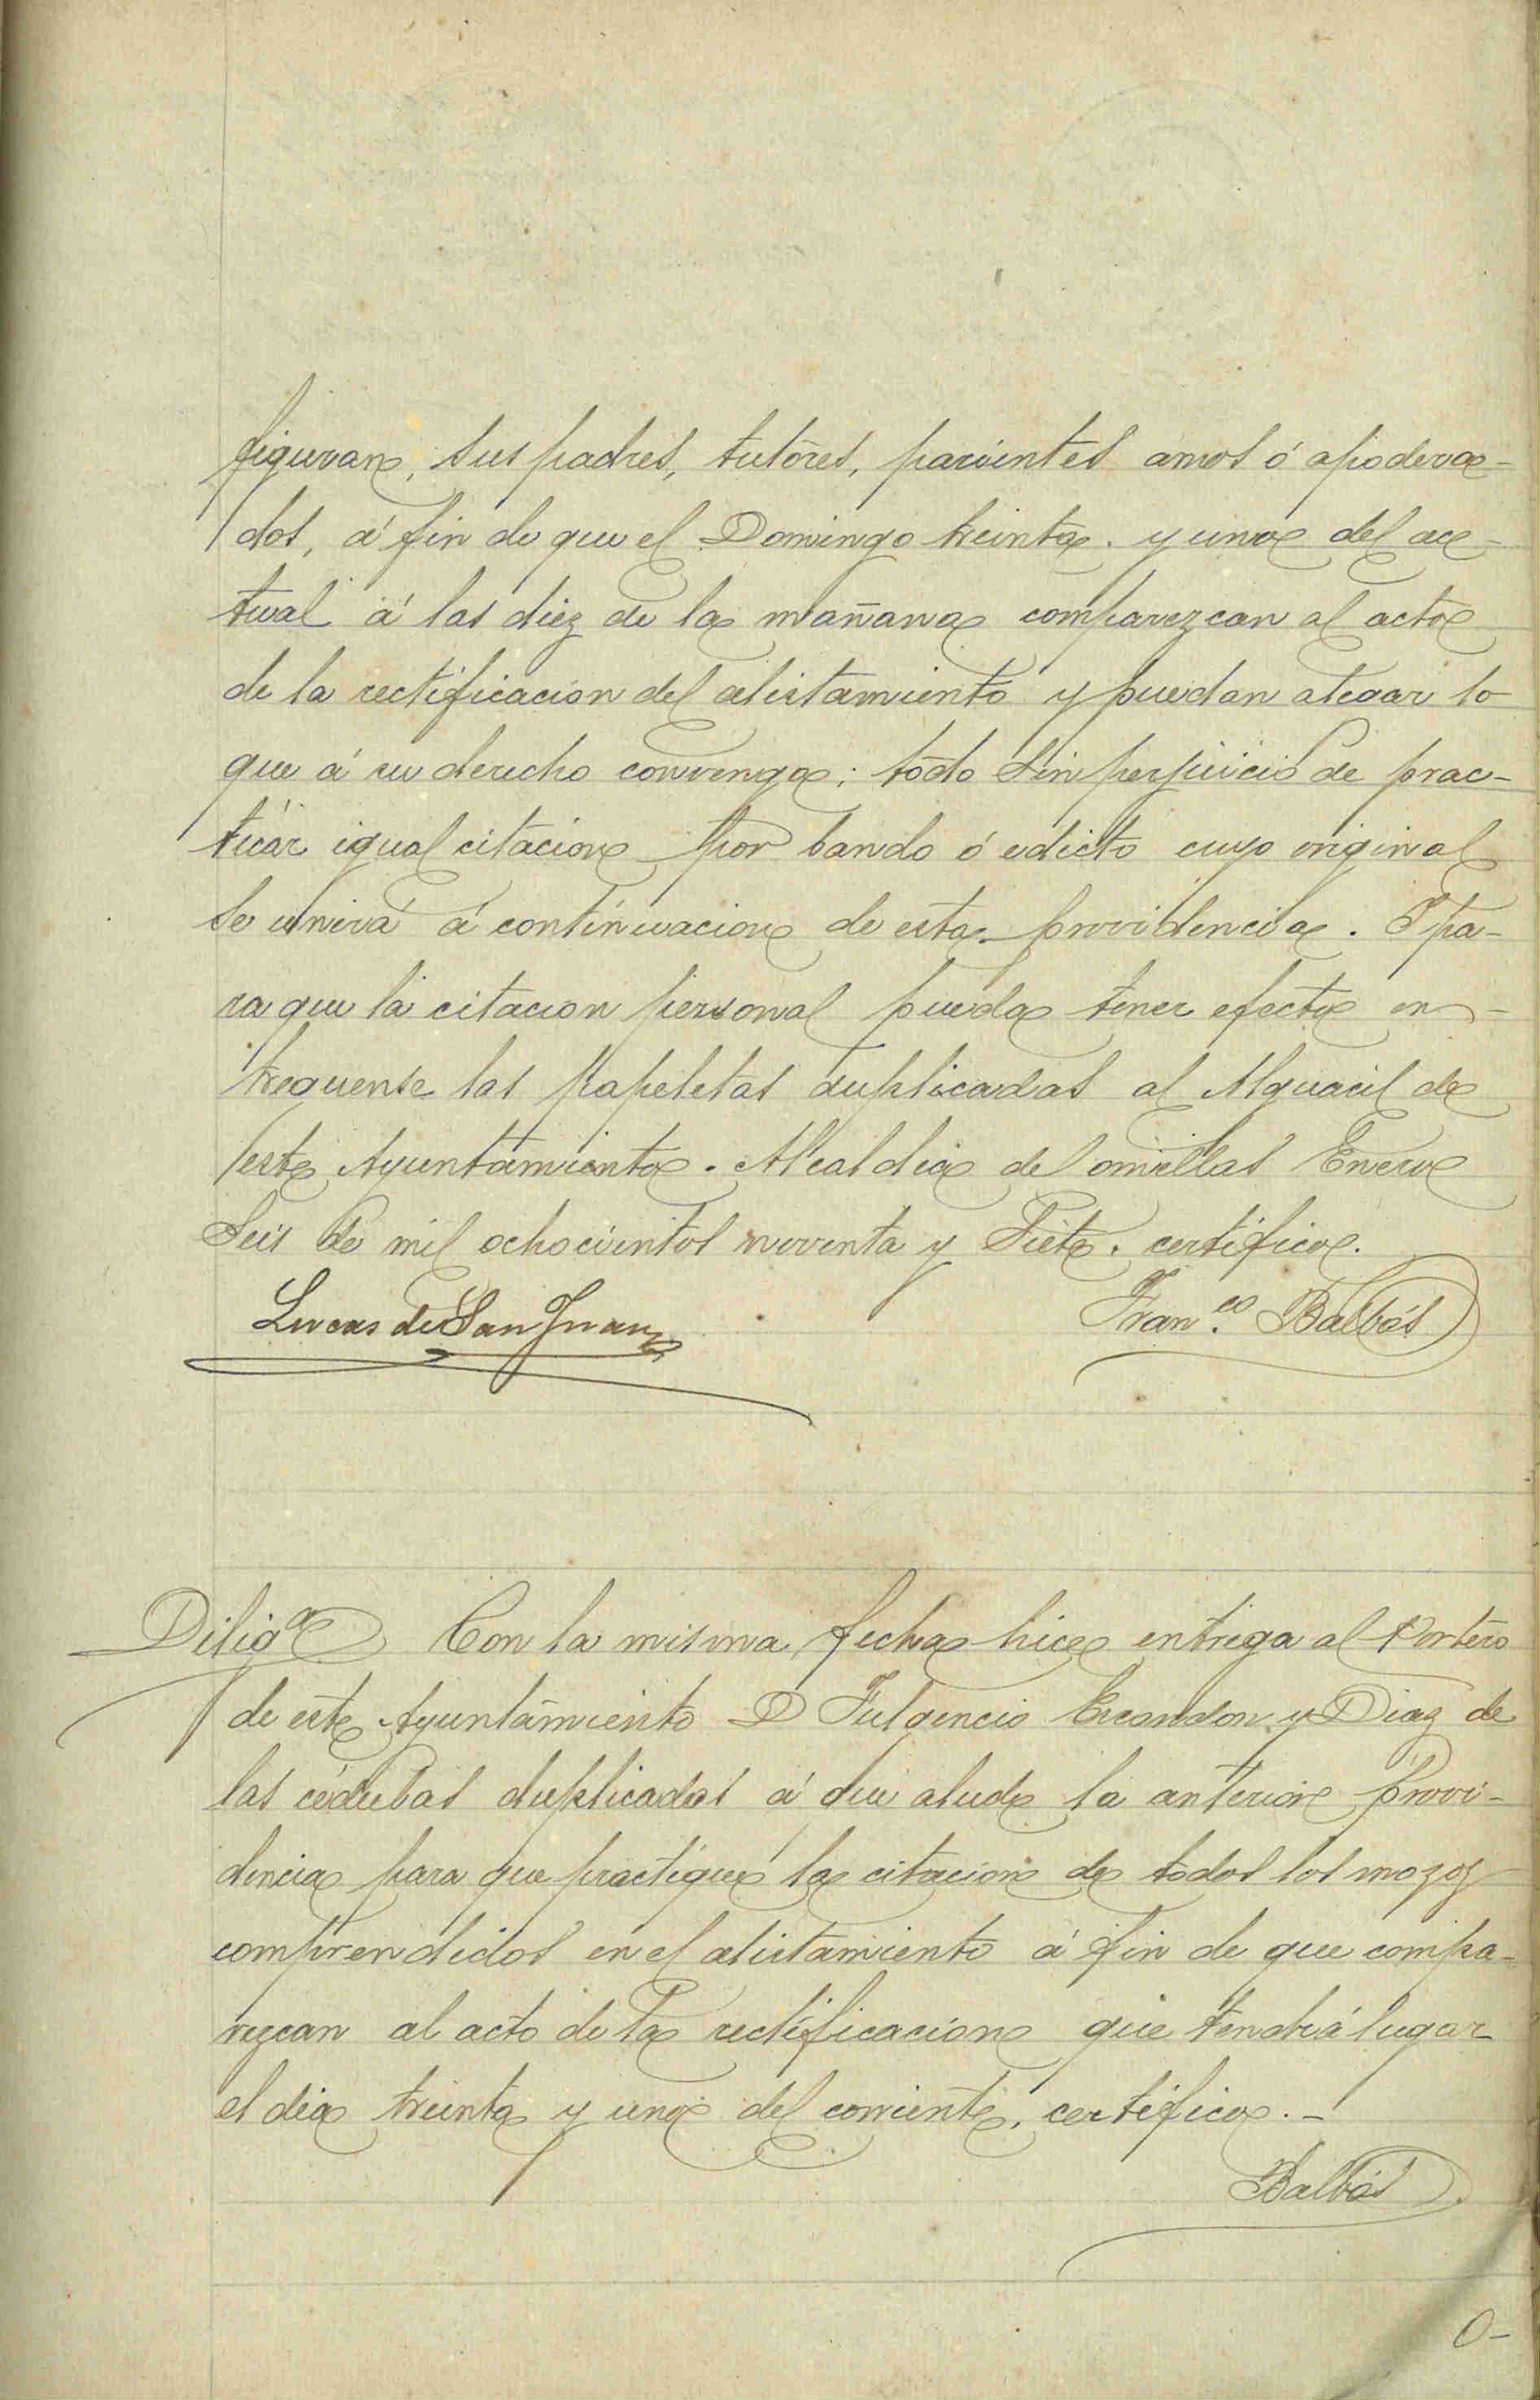 figuran, sus padres, tutores, parientes amos ó apodera-
dos, á fin de que el Domingo treinta y uno del ac-
tual á las diez de la mañana comparezcan al acto
de la rectificacion del alistamiento y puedan alegar lo
que á su derecho convenga; todo sin perjuicio de prac-
ticar igual citacion por bando ó edicto cuyo original
se unirá á continuacion de esta providencia. Y pa-
ra que la citacion personal pueda tener efecto en-
treguense las papeletas duplicadas al Alguacil de
este Ayuntamiento. Alcaldia de Comillas Enero
Seis de mil ochocientos noventa y Siete. certifico.
Lucas de San Juan Fran.co Balbás
Diliga Con la misma fecha hice entrega al Portero
de este Ayuntamiento D Fulgencio Escandon y Diaz de
las cédulas duplicadas á que alude la anterior provi-
dencia para que practique la citacion de todos los mozos
comprendidos en el alistamiento á fin de que compa-
rezcan al acto de la rectificacion que tendrá lugar
el dia treinta y uno del corriente, certifico.-
Balbás
O-